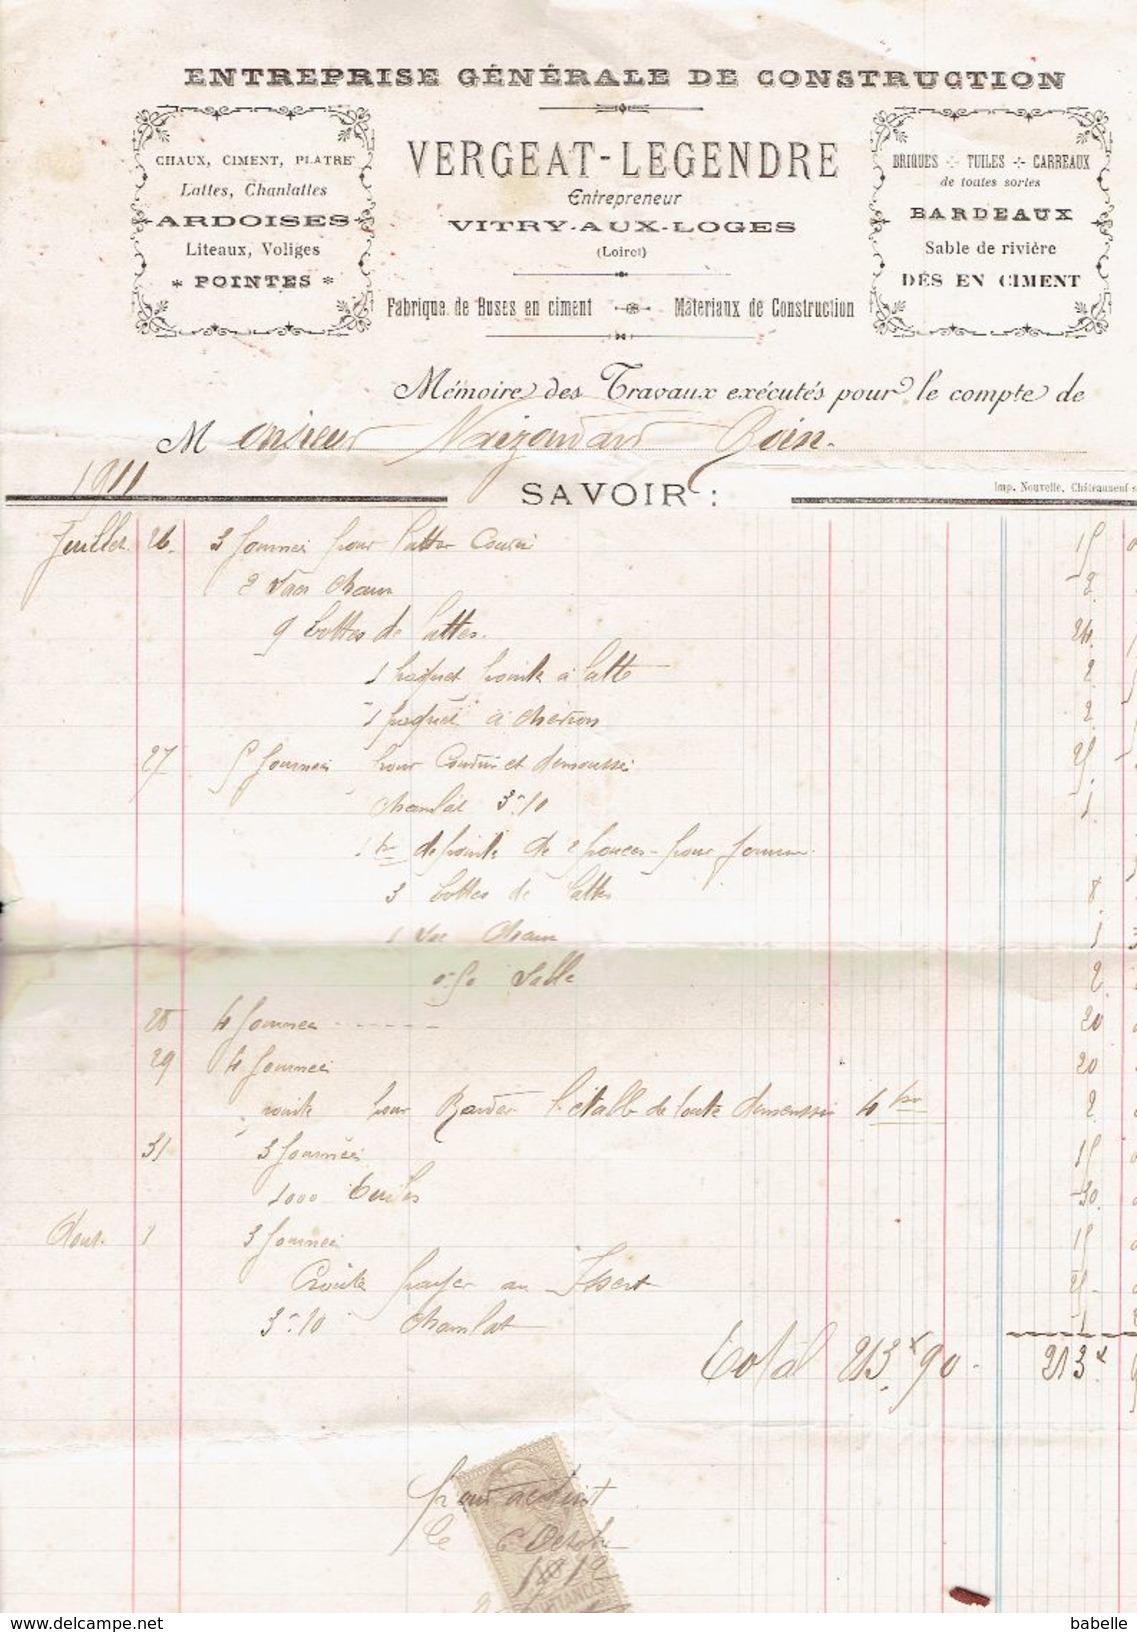 ENTREPRISE GÉNÉRALE DE CONSTRUCTION
CHAUX, CIMENT, PLATRE
Lattes, Chanlattes
ARDOISES
Liteaux, Voliges
* POINTES *
VERGEAT-LEGENDRE
Entrepreneur
VITRY-AUX-LOGES
(Loiret)
Fabrique de Buses en ciment Matériaux de Construction
BRIQUES TUILES CARREAUX
de toutes sortes
BARDEAUX
Sable de rivière
DÉS EN CIMENT
Mémoire des Travaux exécutés pour le compte de
Monsieur
1911
SAVOIR :
Imp. Nouvelle, Châteauneuf-s
Juillet 26. 3 Journeé pour latter 15
2 Sacs Chaux 2
9 bottes de lattes. 24
1 paquet pointe à latte 2
1 paquet à 2
27 5 Journeé pour et demoussé 25
3m10 1
de pointe de 2 pouces pour
3 bottes de lattes 8
1 Sac Chaux 1
0m50 Sable 2
28 4 Journeé 20
29 4 Journeé 20
pointe pour Barder de toute 4 2
31 3 Journeé 15
1000 tuiles 30
Aout 1 3 Journeé 15
payer au 25
3m10 Chanlat 1
total 213f 90 213f
pour acquit
le 6 Octobre
1912
QUITTANCES
delcampe.net
babelle